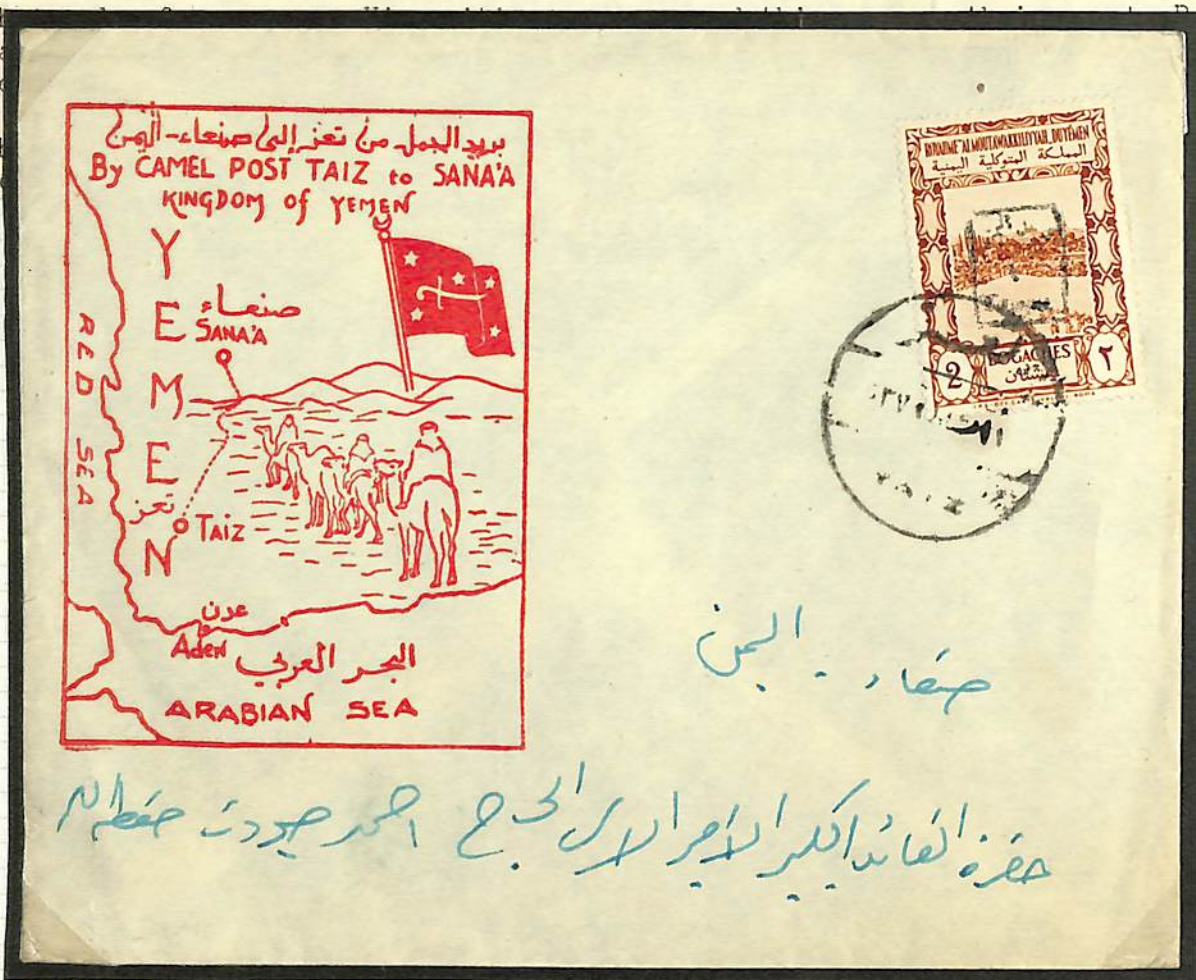 بريد الجمل من تعز إلى صنعاء - اليمن
By CAMEL POST TAIZ to SANA'A
KINGDOM of YEMEN
YEMEN
صنعاء
SANA'A
RED SEA
تعز
TAIZ
عدن
Aden
البحر العربي
ARABIAN SEA
ROYAUME ALMOUTAWAKKILIYYAH DU YÉMEN
المملكة المتوكلية اليمنية
2 BOGACHES ٢
بقشتان
تعز
TAIZ
صنعاء - اليمن
حضرة القائد الكبير الأمير الاي الحاج احمد جودت حفظه الله